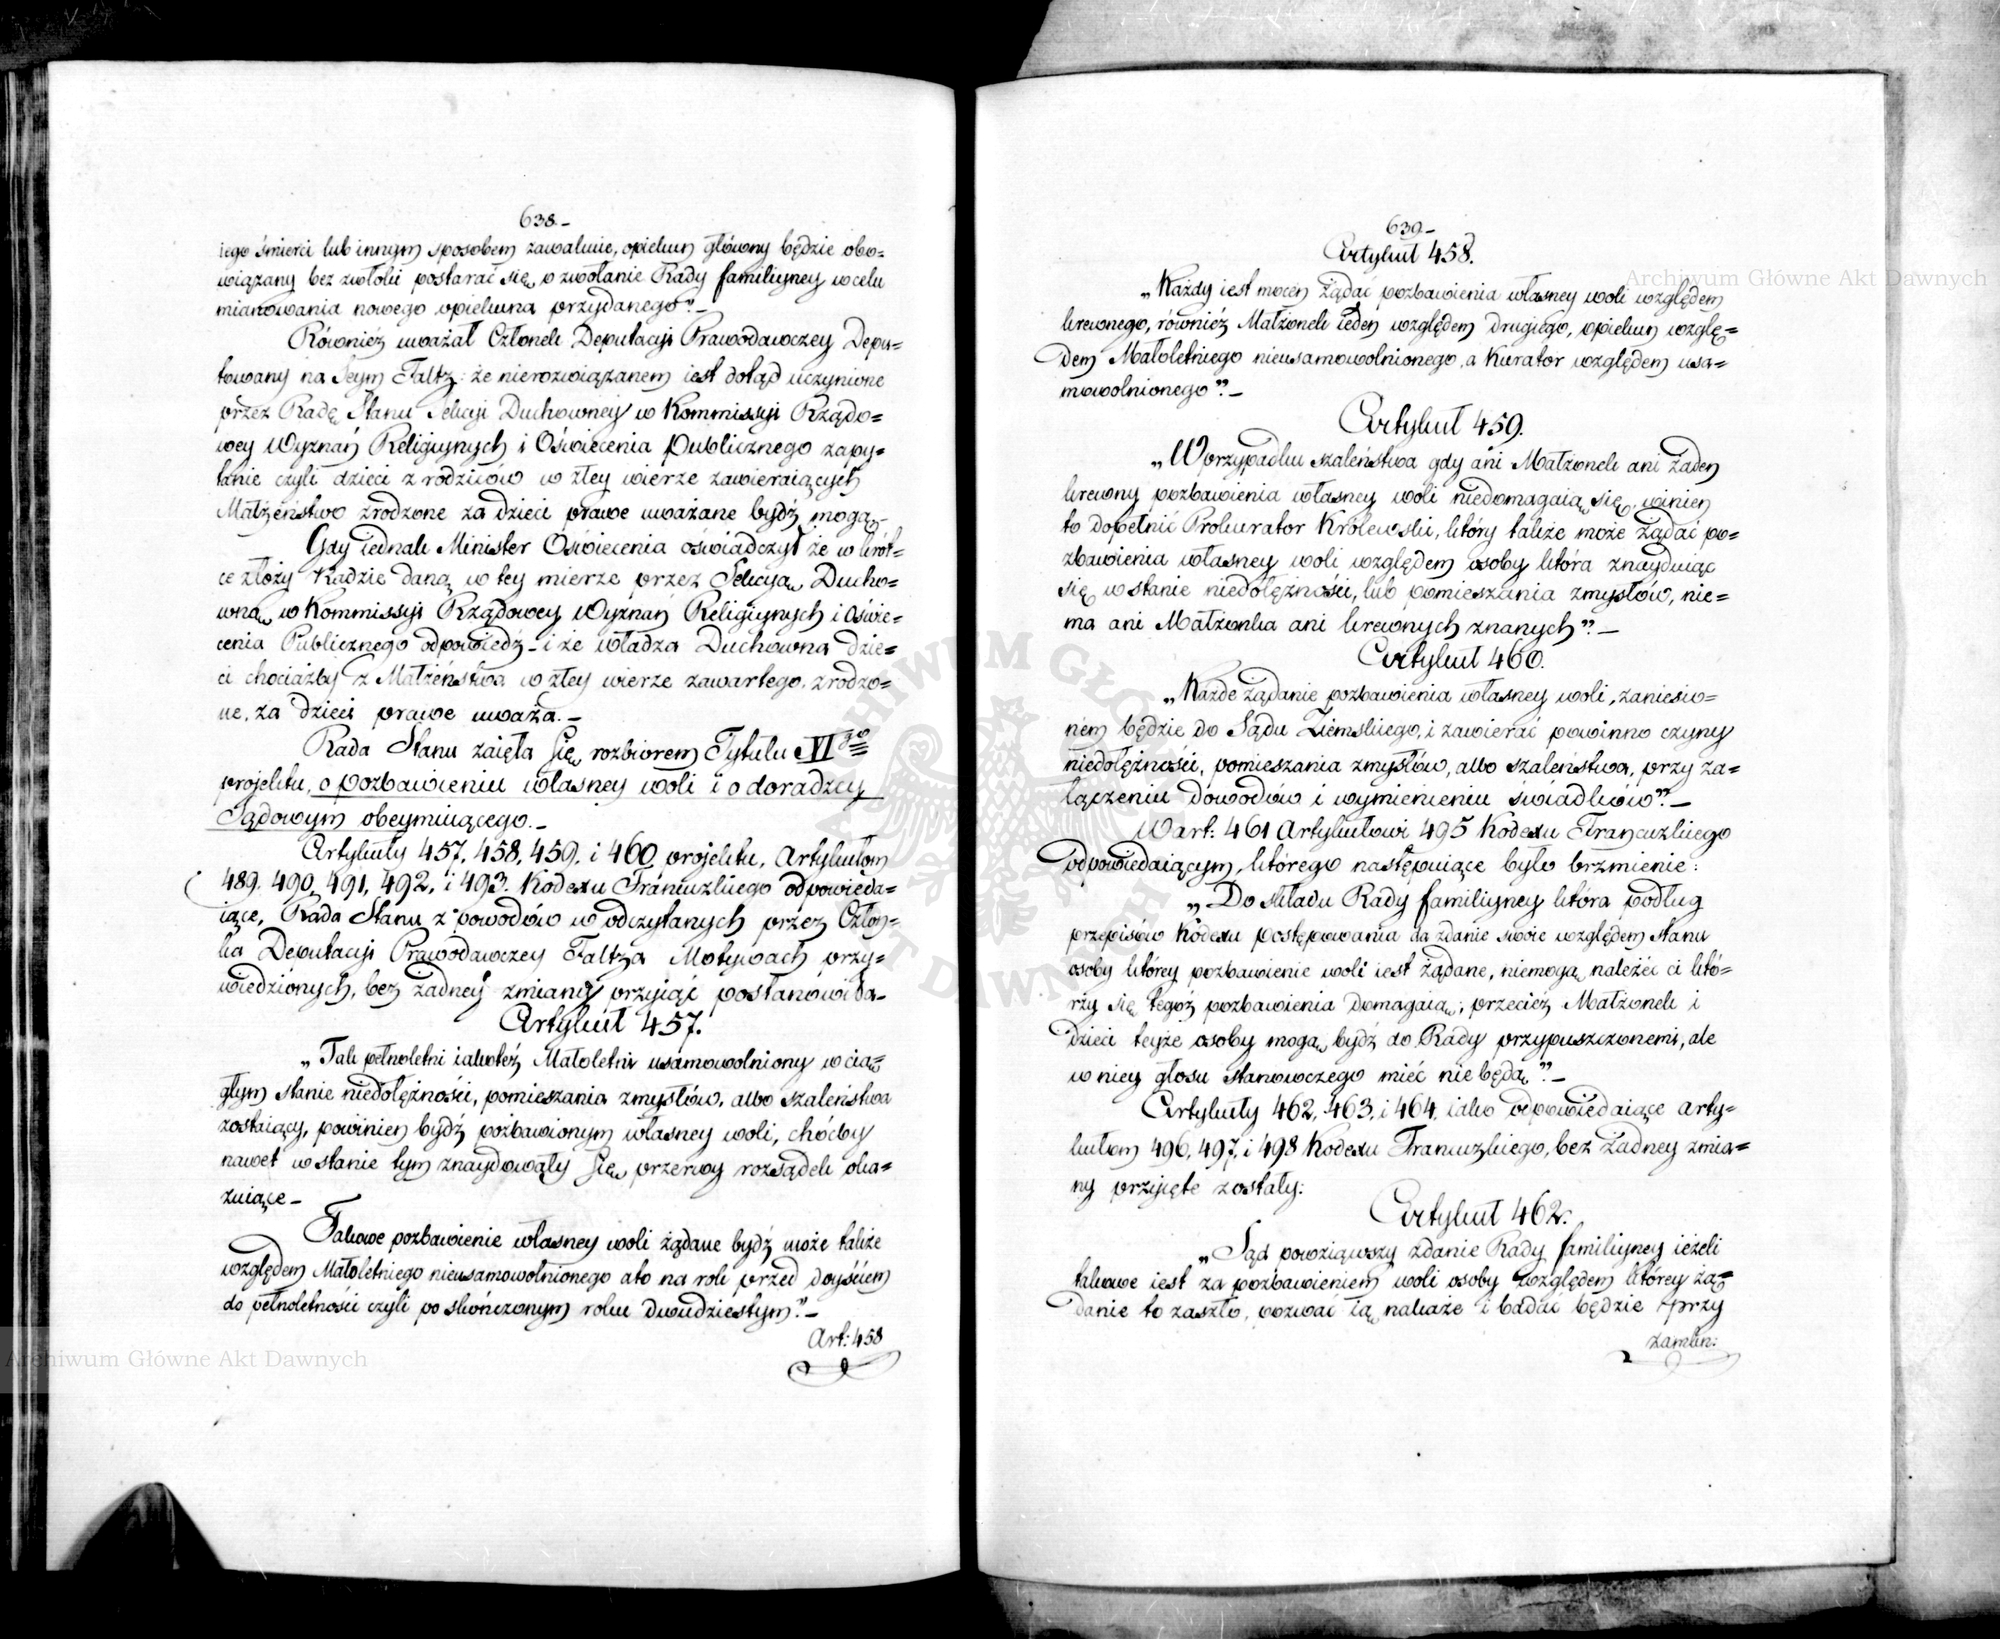 638.-
iego śmierci lub innym sposobem zawakuie, opiekun główny będzie obo=
wiązany bez zwłoki postarać się, o zwołanie Rady familiyney w celu
mianowania nowego opiekuna przydanego".-
Również uważał Członek Deputacyi Prawodawczey Depu=
towany na Seym Faltz: że nierozwiązanem iest dotąd uczynione
przez Radę Stanu Sekcyi Duchowney w Kommissyi Rządo=
wey Wyznań Religiynych i Oświecenia Publicznego zapy=
tanie czyli dzieci z rodziców w złey wierze zawieraiących
Małżeństwo zrodzone za dzieci prawe uważane bydź mogą.-
Gdy iednak Minister Oświecenia oświadczył że w krót=
ce złoży Radzie daną w tey mierze przez Sekcyą Ducho=
wną w Kommissyi Rządowey Wyznań Religiynych i Oświe=
cenia Publicznego odpowiedź - i że władza Duchowna dzie=
ci chociażby z Małżeństwa w złey wierze zawartego, zrodzo=
ne, za dzieci prawe uważa.-
Rada Stanu zaięła się rozbiorem Tytułu VIgo
projektu, o pozbawieniu własney woli i o doradzcy
Sądowym obeymuiącego.-
Artykuły 457, 458, 459, i 460 projektu, Artykułom
489. 490, 491, 492, i 493. Kodexu Francuzkiego odpowieda=
iące, Rada Stanu z powodów w odczytanych przez Człon=
ka Deputacyi Prawodawczey Faltza Motywach przy=
wiedzionych, bez żadney zmiany przyiąć postanowiła.-
Artykuł 457.
„Tak pełnoletni iakoteż Małoletni usamowolniony w cią=
głym stanie niedołężności, pomieszania zmysłów, albo szaleństwa
zostaiący, powinien bydź pozbawionym własney woli, choćby
nawet w stanie tym znaydowały się przerwy rozsądek oka=
zuiące -
Takowe pozbawienie własney woli żądane bydź może także
względem Małoletniego nieusamowolnionego ato na rok przed doyściem
do pełnoletności czyli po skończonym roku dwudziestym".-
Art: 458
639.-
Artykuł 458.
„Każdy iest mocen żądać pozbawienia własney woli względem
krewnego, również Małżonek ieden względem drugiego, opiekun wzglę=
dem Małoletniego nieusamowolnionego, a Kurator względem usa=
mowolnionego".-
Artykuł 459.
„W przypadku szaleństwa gdy ani Małżonek ani żaden
krewny pozbawienia własney woli niedomagaią się, winien
to dopełnić Prokurator Królewski, który także może żądać po=
zbawienia własney woli względem osoby która znayduiąc
się w stanie niedołężności, lub pomieszania zmysłów, nie=
ma ani Małżonka ani krewnych znanych".-
Artykuł 460.
„Każde żądanie pozbawienia własney woli, zaniesio=
nem będzie do Sądu Ziemskiego, i zawierać powinno czyny
niedołężności, pomieszania zmysłów, albo szaleństwa, przy za=
łączeniu dowodów i wymienieniu świadków".-
W art: 461 Artykułowi 495 Kodexu Francuzkiego
odpowiedaiącym, którego następuiące było brzmienie:
„Do składu Rady familiyney która podług
przepisów Kodexu postępowania da zdanie swoie względem stanu
osoby którey pozbawienie woli iest żądane, niemogą należeć ci któ=
rzy się tegoż pozbawienia domagaią; przecież Małżonek i
dzieci teyże osoby mogą bydź do Rady przypuszczonemi, ale
w niey głosu stanowczego mieć nie będą".-
Artykuły 462, 463, i 464, iako odpowiedaiące arty=
kułom 496, 497, i 498 Kodexu Francuzkiego, bez żadney zmia=
ny przyięte zostały:
Artykuł 462.
„Sąd powziąwszy zdanie Rady familiyney ieżeli
takowe iest za pozbawieniem woli osoby względem którey żą=
danie to zaszło, pozwać ią nakaże i badać będzie przy
zamkn:
Archiwum Główne Akt Dawnych
Archiwum Główne Akt Dawnych
ARCHIWUM GŁÓWNE AKT DAWNYCH